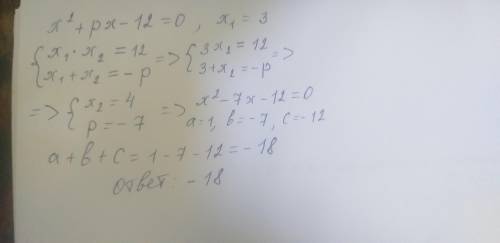 x² + px - 12 = 0 , x₁ = 3
{ x₁ · x₂ = 12 => { 3x₂ = 12 =>
{ x₁ + x₂ = -p { 3 + x₂ = -p
=> { x₂ = 4 => x² - 7x - 12 = 0
{ p = -7 a = 1, b = -7, c = -12
a + b + c = 1 - 7 - 12 = -18
ответ: -18